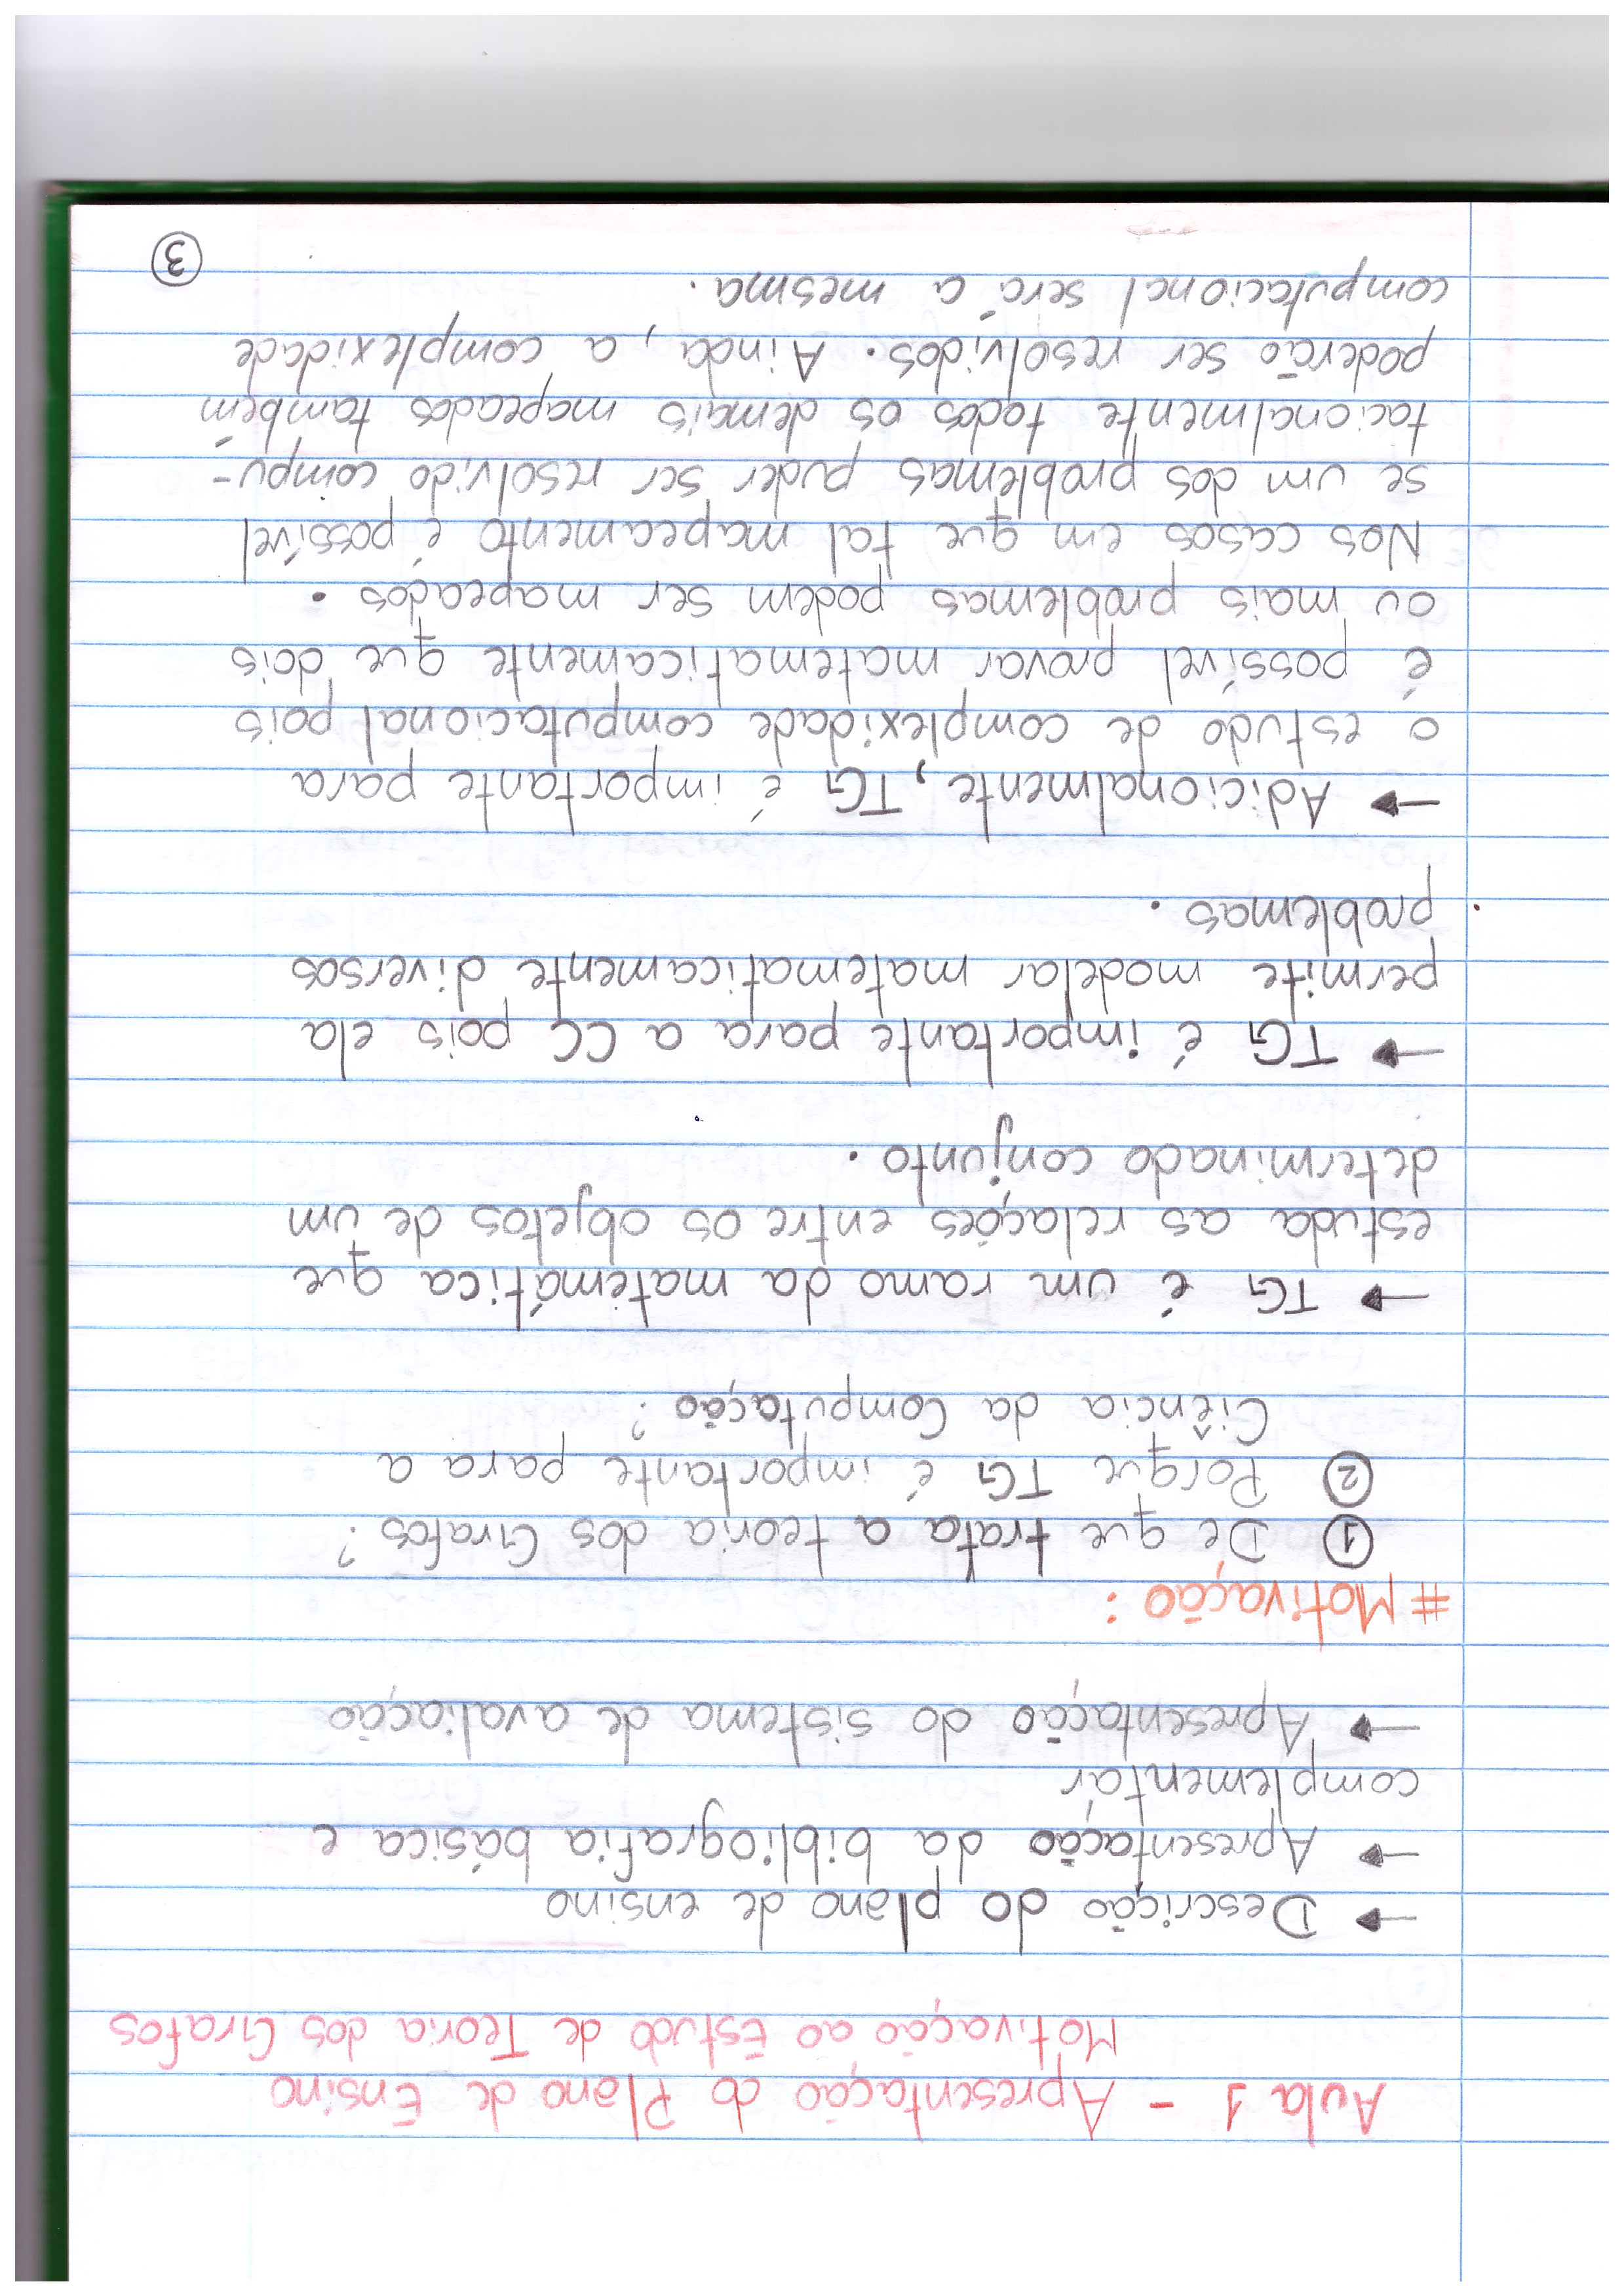 Aula 1 - Apresentação do Plano de Ensino
Motivação ao Estudo de Teoria dos Grafos
→ Descrição do plano de ensino
→ Apresentação da bibliografia básica e
complementar
→ Apresentação do sistema de avaliação
# Motivação:
① De que trata a teoria dos Grafos?
② Porque TG é importante para a
Ciência da Computação?
→ TG é um ramo da matemática que
estuda as relações entre os objetos de um
determinado conjunto.
→ TG é importante para a CC pois ela
permite modelar matematicamente diversos
problemas.
→ Adicionalmente, TG é importante para
o estudo de complexidade computacional pois
é possível provar matematicamente que dois
ou mais problemas podem ser mapeados.
Nos casos em que tal mapeamento é possível
se um dos problemas puder ser resolvido compu-
tacionalmente todos os demais mapeados também
poderão ser resolvidos. Ainda, a complexidade
computacional será a mesma.
③